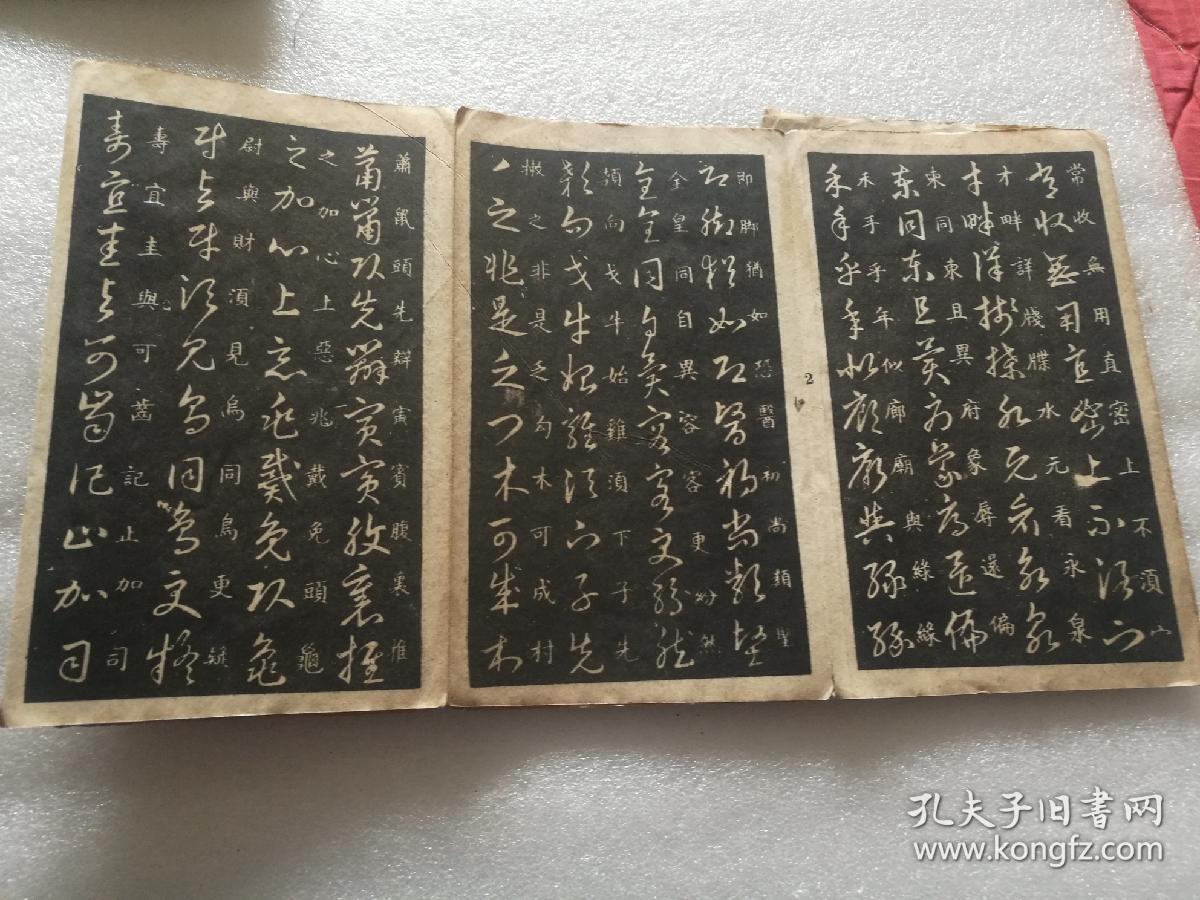 常收無用直密上不須宀
才畔詳牋牒水元看永泉
東同東且異府象辱還偏
禾手乎年似廊廟與綠緣
2
即脚猶如恐醫初尚類堅
全皇同自異容客更妙然
頷向戈牛始雞須下子先
撇之非是乏勾木可成村
蕭鼠頭先辯寅賓腹裏推
之加心上惡兆戴免頭龜
尉與財須見烏同鳥更疑
壽宜圭與可齒記止加司
孔夫子旧书网
www.kongfz.com